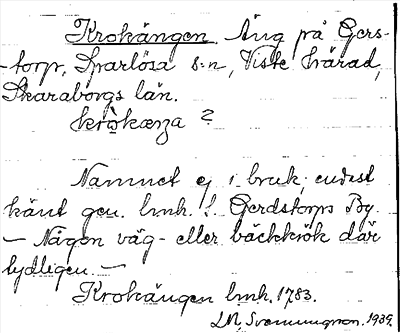 Krokängen. Äng på Gers-
torp, Sparlösa s:n, Viste härad,
Skaraborgs län.
?
Namnet ej i bruk, endast
känt gen. lmh. f. Gerdstorps By.
- Någon väg- eller bäckkrök där
tydligen. -
Krokängen lmh. 1783.
1939.